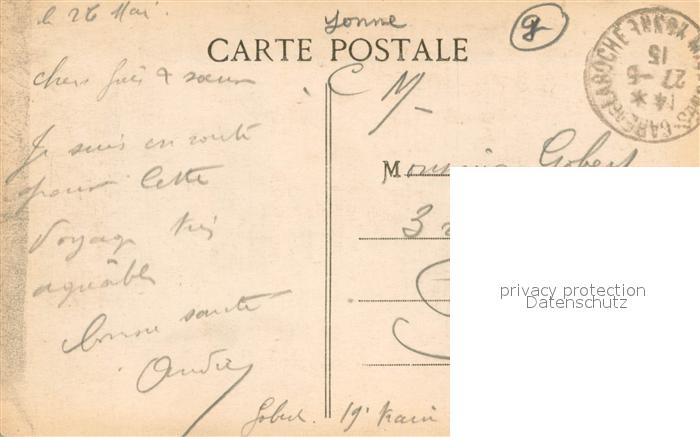 le 26 Mai.
Yonne
CARTE POSTALE
chers frère & sœur
C M
Je suis en route
pour Cette
Voyage très
agréable
bonne santé
André
Monsieur Gobert
3
Gobert 19e train
GARE DE LAROCHE YONNE
14 *
27-5
15
privacy protection
Datenschutz